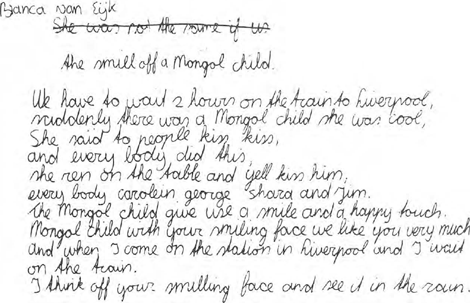 Bianca van Eijk
She was not the same if us
the smill off a Mongol child.
We have to wait 2 hours on the train to Liverpool,
suddenly there was a Mongol child she was cool,
She said to people kiss kiss,
and every body did this,
she ren on the table and yell kiss him,
every body carolein george shara and Jim.
The Mongol child give use a smile and a happy touch.
Mongol child with your smiling face we like you very much
and when I come on the station in Liverpool and I wait
on the train.
I think off your smilling face and see it in the rain.